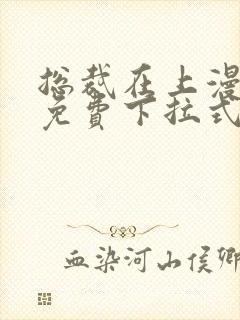 总裁在上漫
免费下拉式
血染河山侯卿